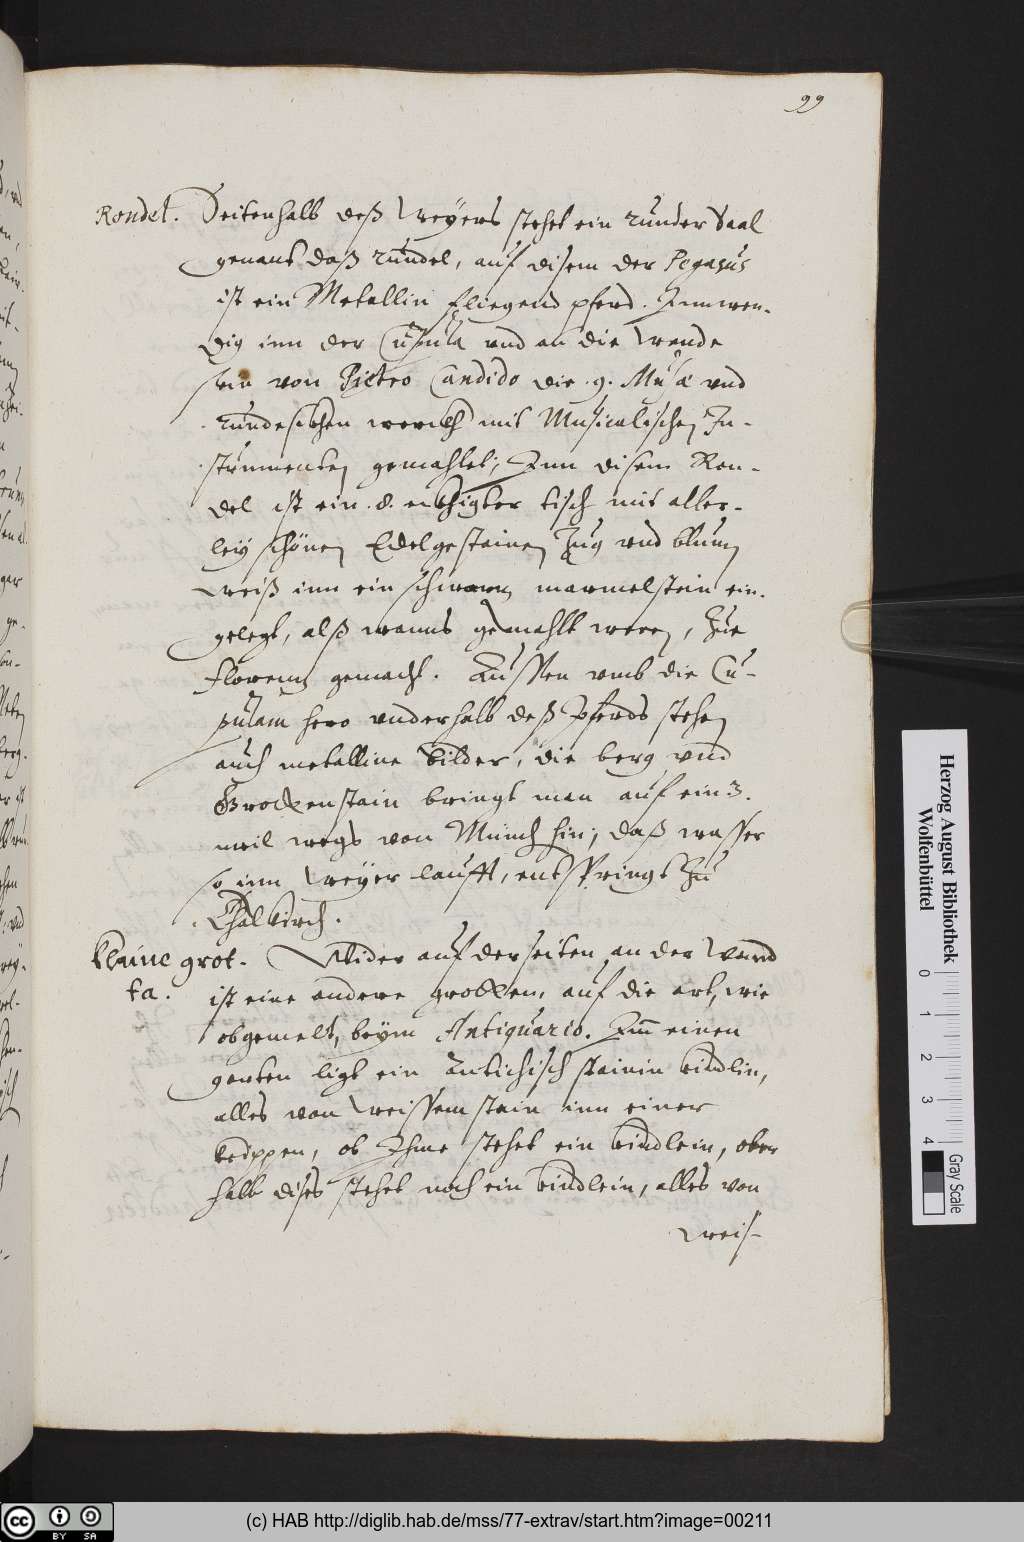 99
Rondel. Seitenhalb deß Weÿers stehet ein runder Saal
genant daß rundel, auf disem der Pegasus
ist ein Metallin fliegend pferd. Innwen-
dig inn der Cupula vnd an die Wende
sein von Pietro Candido die .9. Musæ vnd
mit Musicalischen In-
strumenten gemahlet, Inn disem Ron-
del ist ein .8. eckhigter tisch mit aller-
leÿ schönen Edelgestainen Zug vnd blum
weiß inn ein schwarz marmelstein ein-
gelegt, alß wanns gemahlt were, Zue
Florenz gemacht. Aussen vmb die Cu-
pulam hero vnderhalb deß Pferds stehen
auch metalline bilder, die berg vnd
Grottenstain bringt man auf ein 3.
meil wegs von Münch hin, daß wasser
so inn Weÿer laufft, entspringt zu
Thalkirch.
klaine grot- Wider auf der seiten an der Wand
ta. ist eine andere grotten, auf die art, wie
obgemelt, beÿm Antiquario. Inn einen
garten ligt ein Antichisch stainin kindlin,
alles von Weissem stain inn einer
, ob Ihme stehet ein kindlein, ober
halb dises stehet noch ein kindlein, alles von
weis-
Herzog August Bibliothek
Wolfenbüttel
0 1 2 3 4
Gray Scale
cc BY SA
(c) HAB http://diglib.hab.de/mss/77-extrav/start.htm?image=00211